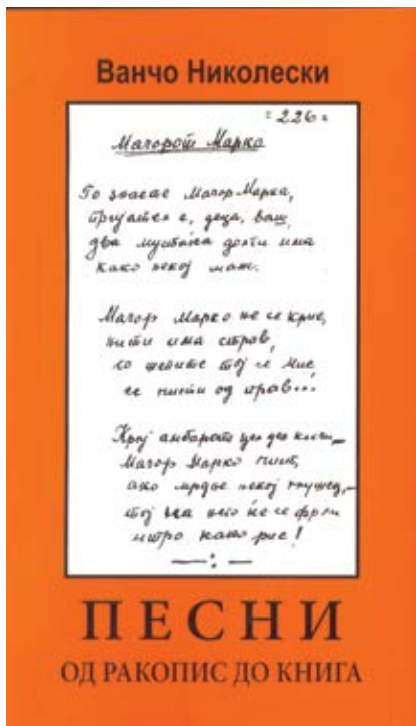 Ванчо Николески
= 226 =
Мачорот Марко
Го знаете Мачор Марка,
пријател е, деца, ваш,
два мустаќа долги има
како некој маж.
Мачор Марко не се крие,
нити има страв,
со шепите тој се мие
се чисти од прав...
Крај амбарот цел ден клечи
Мачор Марко
ако мрдне некој глушец,
тој на него се фрла
итро како рис!
— : —
ПЕСНИ
ОД РАКОПИС ДО КНИГА